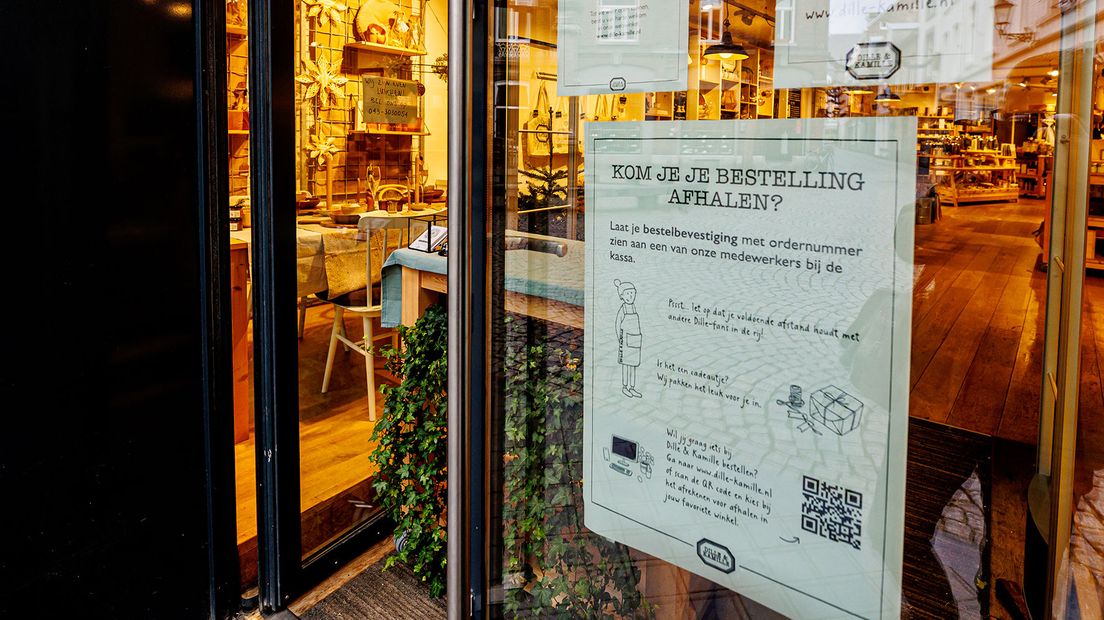 www.dille-kamille.nl
www.dille-kamille.nl
DILLE &
KAMILLE
WIJ ZIJN EVEN
LUNCHEN!
BEL ONZE
043-3050054
KOM JE JE BESTELLING
AFHALEN?
Laat je bestelbevestiging met ordernummer
zien aan een van onze medewerkers bij de
kassa.
Pssst... let op dat je voldoende afstand houdt met
andere Dille-fans in de rij!
Is het een cadeautje?
Wij pakken het leuk voor je in.
Wil jij graag iets bij
Dille & Kamille bestellen?
Ga naar www.dille-kamille.nl
of scan de QR code en kies bij
het afrekenen voor afhalen in
jouw favoriete winkel.
DILLE &
KAMILLE